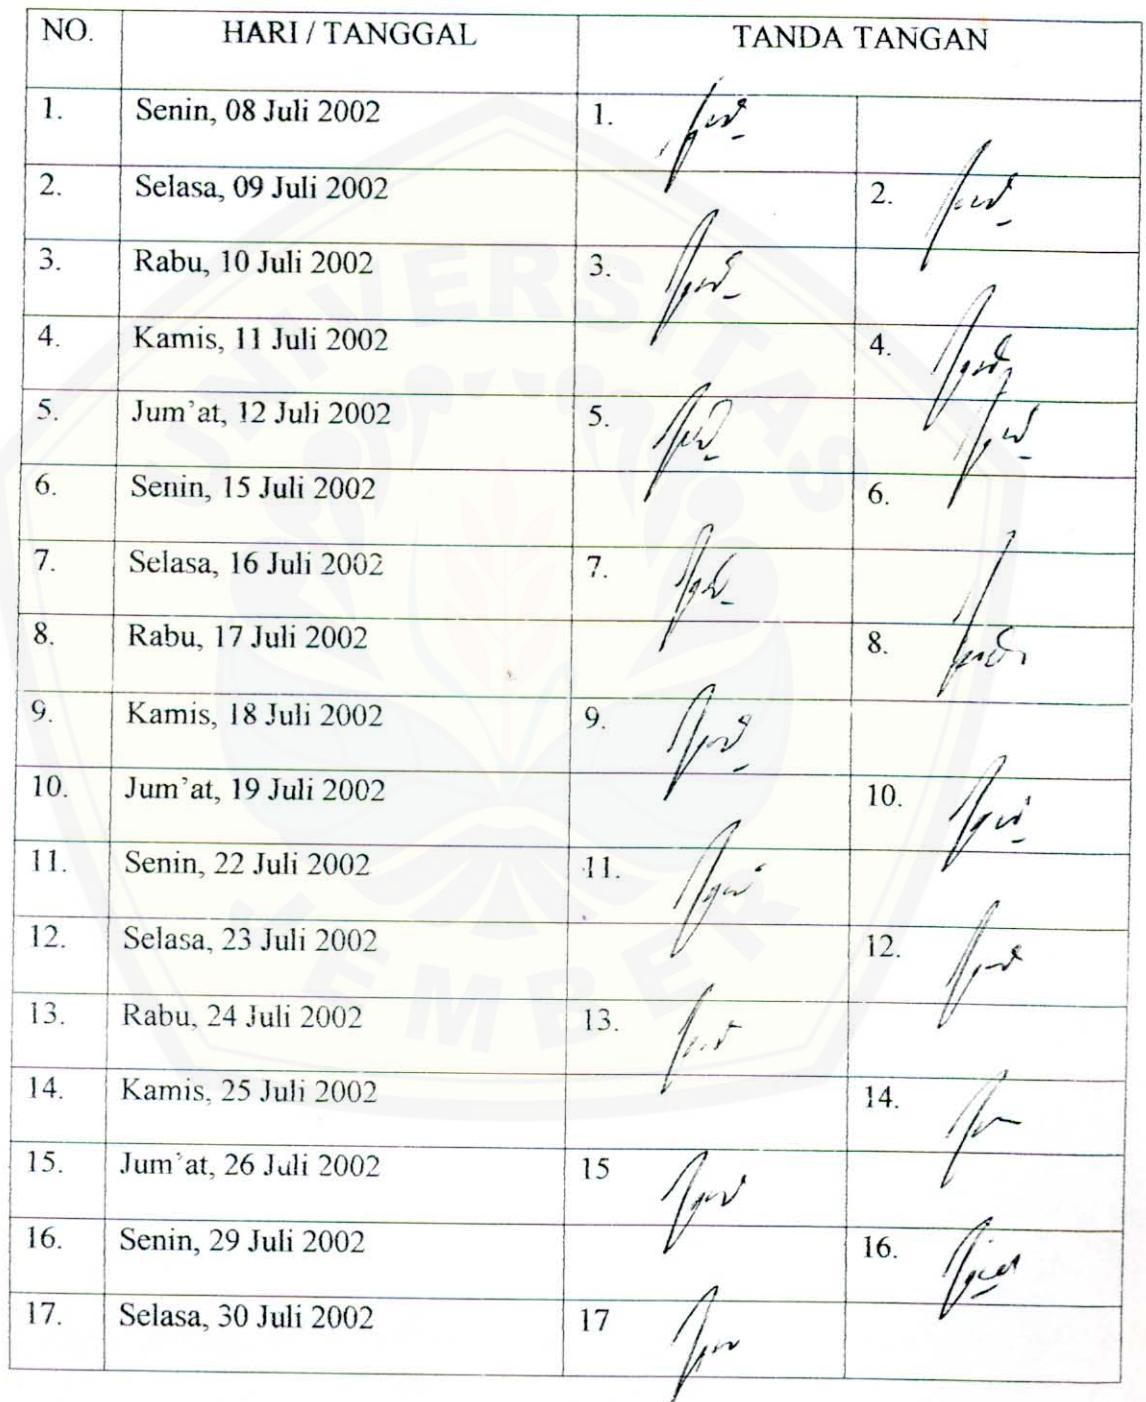 NO. HARI / TANGGAL TANDA TANGAN
1. Senin, 08 Juli 2002 1.
2. Selasa, 09 Juli 2002 2.
3. Rabu, 10 Juli 2002 3.
4. Kamis, 11 Juli 2002 4.
5. Jum'at, 12 Juli 2002 5.
6. Senin, 15 Juli 2002 6.
7. Selasa, 16 Juli 2002 7.
8. Rabu, 17 Juli 2002 8.
9. Kamis, 18 Juli 2002 9.
10. Jum'at, 19 Juli 2002 10.
11. Senin, 22 Juli 2002 11.
12. Selasa, 23 Juli 2002 12.
13. Rabu, 24 Juli 2002 13.
14. Kamis, 25 Juli 2002 14.
15. Jum'at, 26 Juli 2002 15
16. Senin, 29 Juli 2002 16.
17. Selasa, 30 Juli 2002 17
UNIVERSITAS
JEMBER